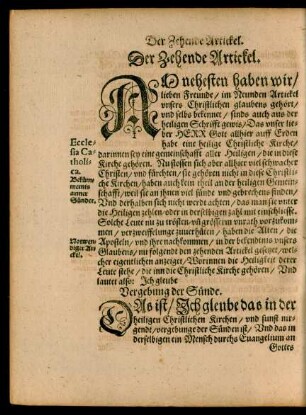 Der Zehende Artickel.
Der Zehende Artickel.
AO nehesten haben wir/
lieben Freunde/ im Neunden Artickel
vnsers Christlichen glaubens gehört/
vnd selbs bekennet/ sinds auch aus der
heiligen Schrifft gewis/ Das vnser lie-
ber HERR Gott allhier auff Erden
habe eine heilige Christliche Kirche/
darinnen sey eine gemeinschafft aller Heiligen/ die in diese
Kirche gehören. Nu stossen sich aber allhier viel schwacher
Christen/ vnd fürchten/ sie gehören nicht in die Christliche
Kirchen/ haben auch kein theil an der heiligen Gemein-
schafft/ weil sie an ihnen viel sünde vnd gebrechen finden/
Vnd derhalben sich nicht werdt achten/ das man sie vnter
die Heiligen zehlen/ oder in derselbigen zahl mit einschliesse.
Solche Leute nu zu trösten/
vnd vorzukom-
men/ verzweiffelunge zuuerhüten/ haben die Alten/ die
Aposteln/ vnd ihre nachkommen/ in der bekendtnis vnsers
Glaubens/ nu folgends den zehenden Artickel gesetzt/ wel-
cher eigentlichen anzeiget/ Worinnen die Heiligkeit derer
Leute stehe/ die inn die Christliche Kirche gehören/ Vnd
lautet also: Ich gleube
Vergebung der Sünde.
DAs ist/ Ich gleube das in der
heiligen Christlichen Kirchen/ vnd sunst nir-
gendt/ vergebunge der Sünden ist/ Vnd das in
derselbigen ein Mensch durchs Euangelium an
Gottes
Eccle-
sia Ca-
tholi-
ca.
Beküm-
mernis
armer
Sünder.
Notwen-
diger Ar-
tickel.